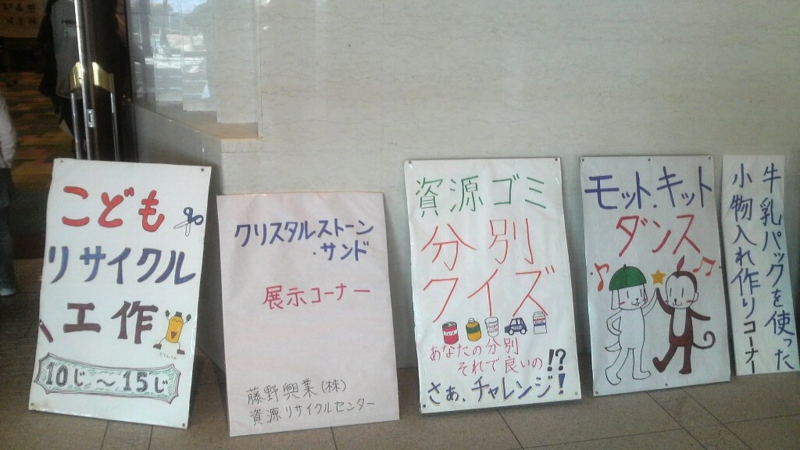 こども
リサイクル
工作
10じ～15じ
クリスタルストーン
・サンド
展示コーナー
藤野興業(株)
資源リサイクルセンター
資源ゴミ
分別
クイズ
あなたの分別
それで良いの!?
さぁ、チャレンジ!
モット.キット
ダンス
牛乳パックを使った
小物入れ作りコーナー